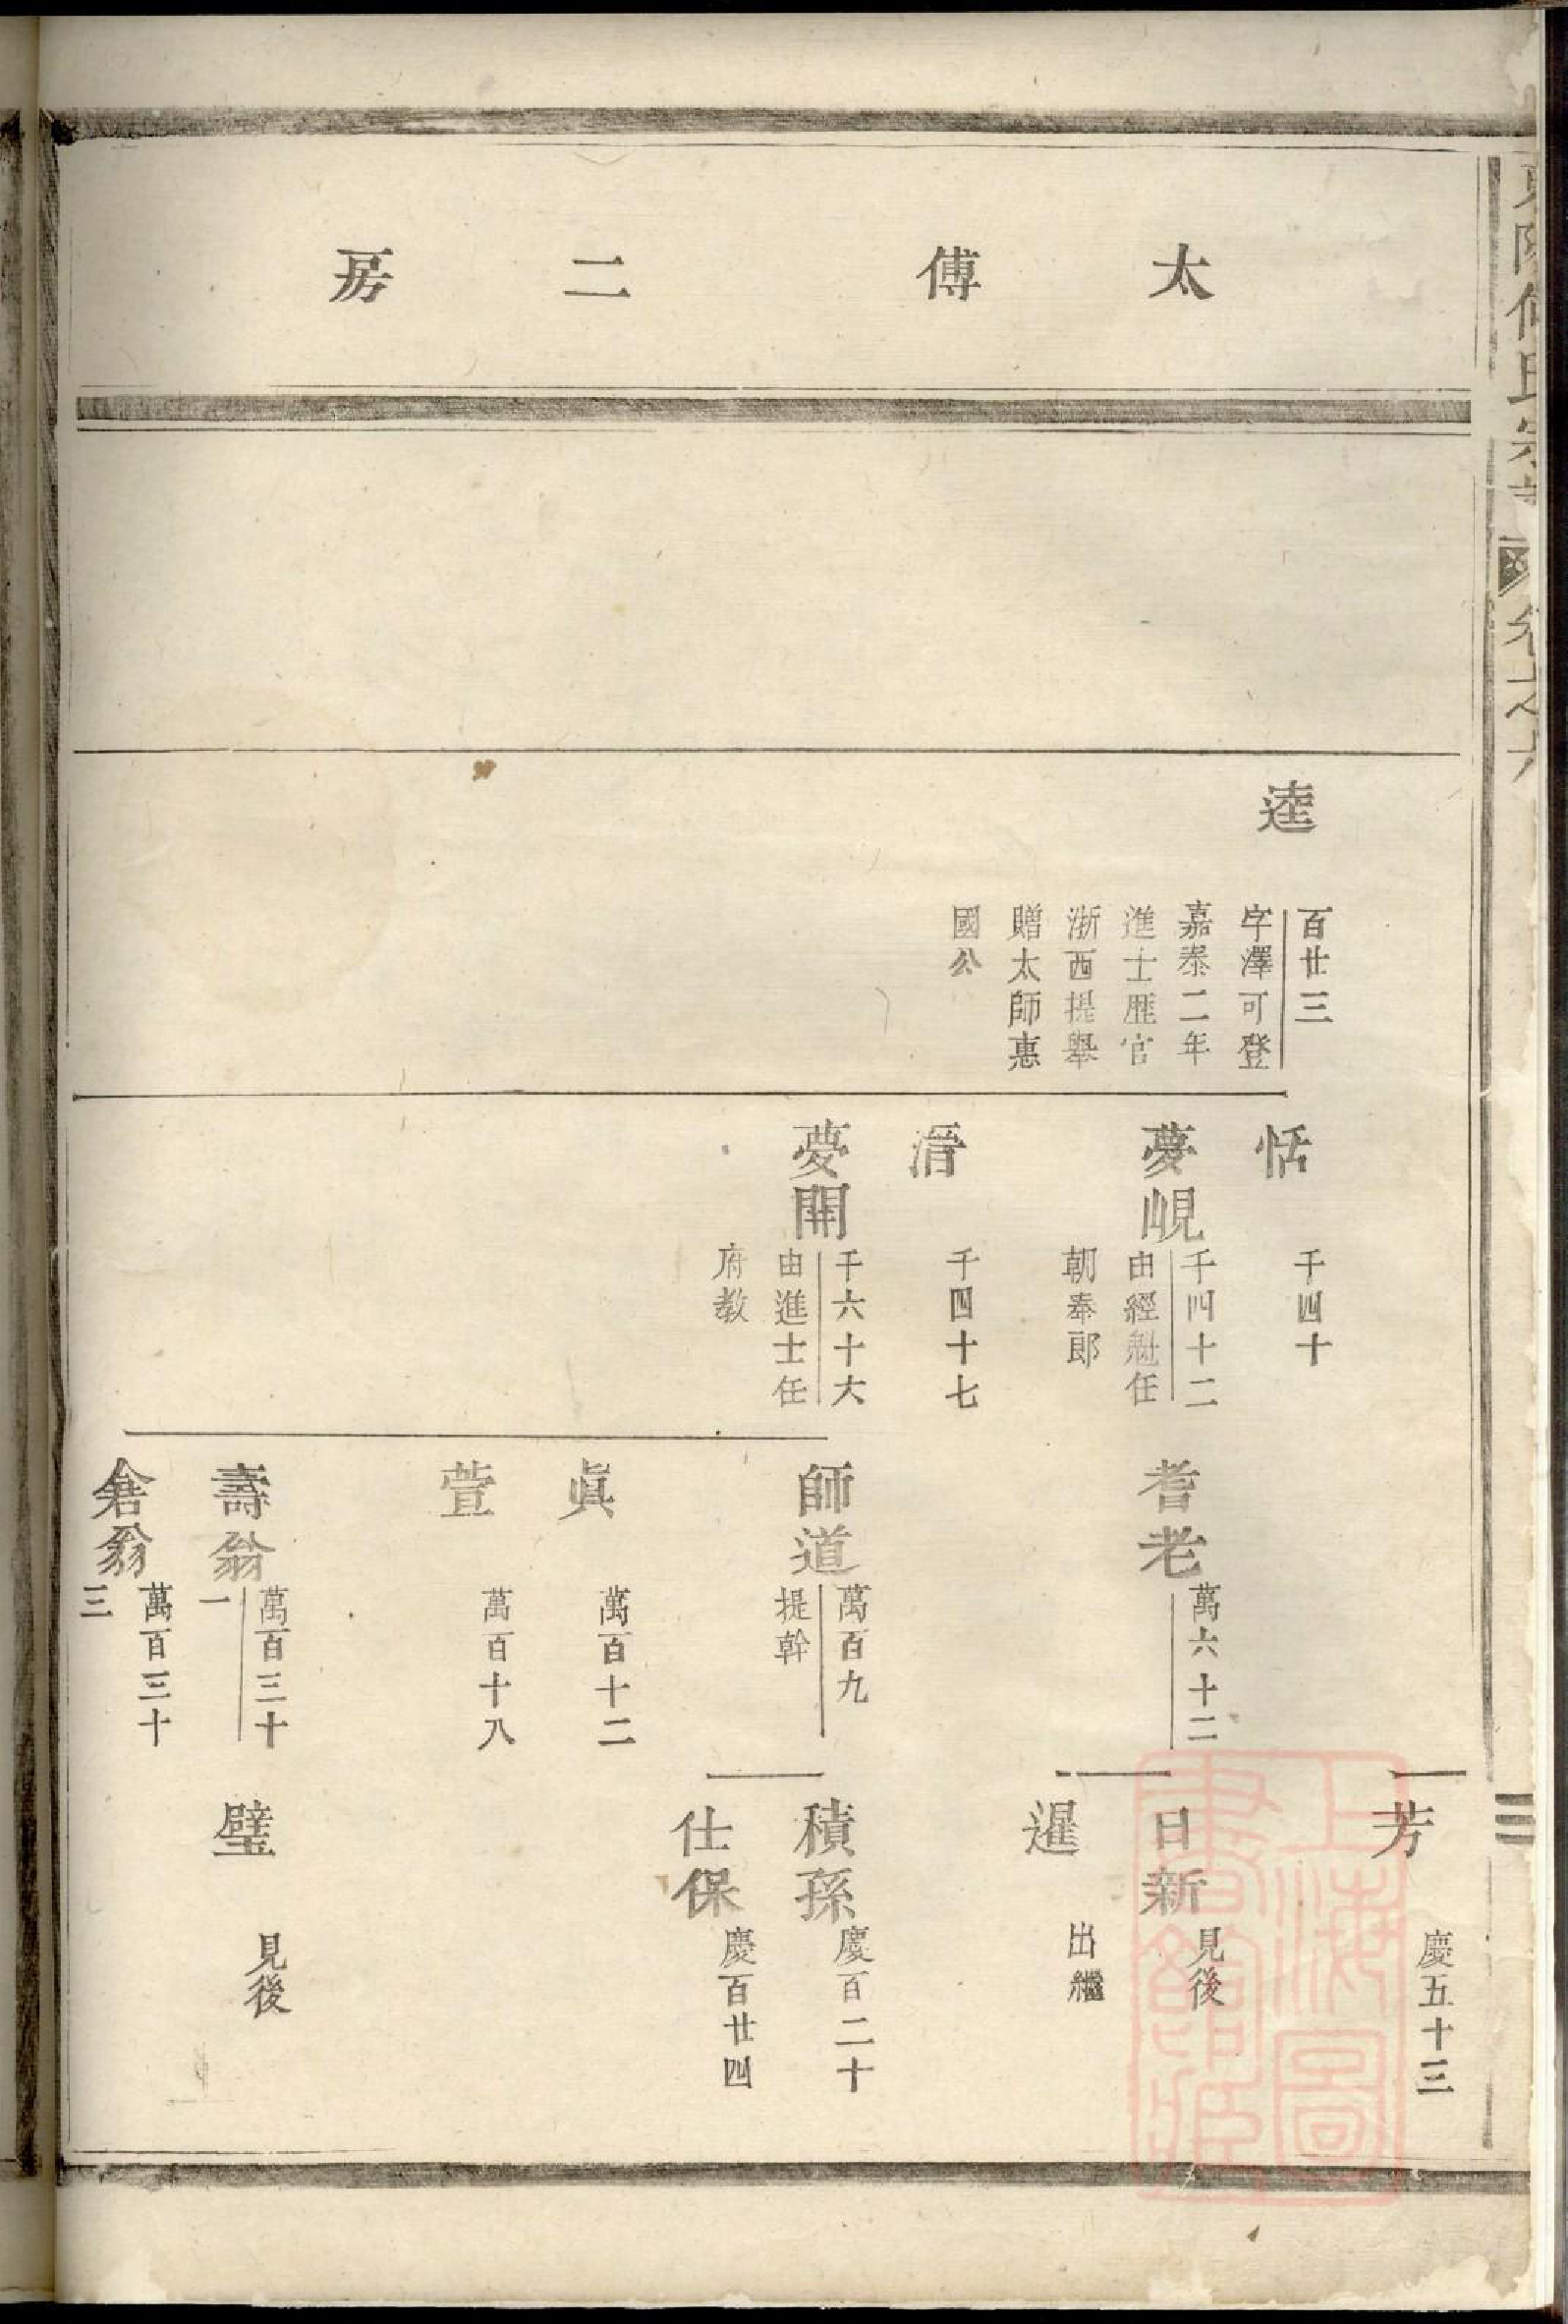 太傅二房
逵
百廿三
字澤可登
嘉泰二年
進士歷官
浙西提舉
贈太師惠
國公
恬
千四十
夢峴
千四十二
由經魁任
朝奉郎
溍
千四十七
夢開
千六十六
由進士任
府教
耆老
萬六十二
師道
萬百九
提幹
眞
萬百十二
萱
萬百十八
壽翁
萬百三十
一
翁
萬百三十
三
芳
慶五十三
日新
見後
暹
出繼
積孫
慶百二十
仕保
慶百廿四
璧
見後
上海圖
書館藏